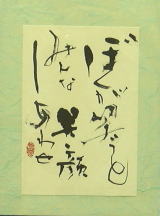 ぼくが笑うと
みんな笑顔
しあわせ